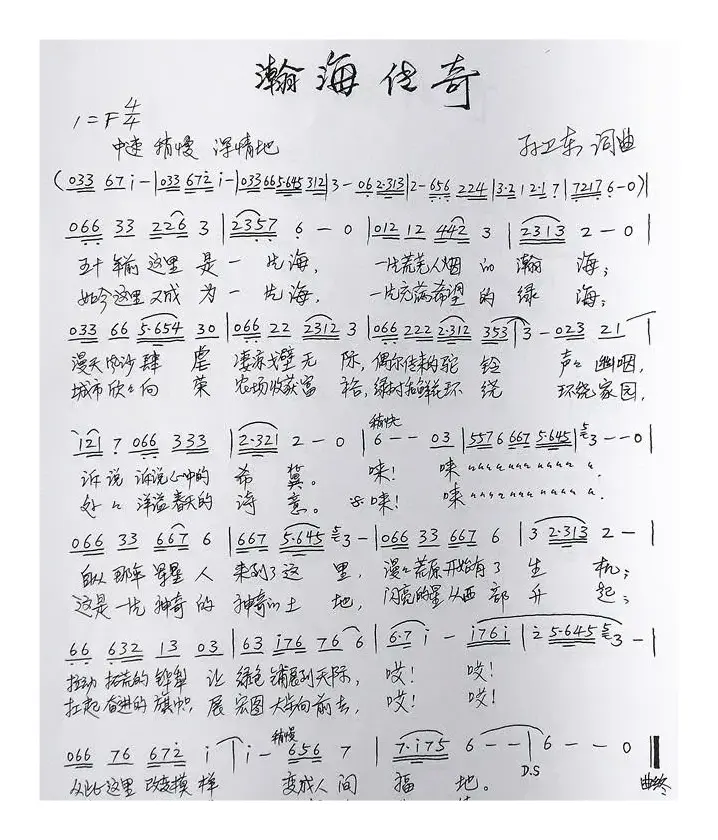 瀚海传奇
1=F 4/4
中速 稍慢 深情地 孙卫东 词曲
(033 67 i-|033 672 i-|033 665·645 312|3-062·313|2-656 224|3·2 12·17|7217 6-0)|
066 33 226 3|2357 6-0|012 12 442 3|2313 2-0|
五十年前这里是一片海, 一片荒芜人烟的瀚海;
如今这里又成为一片海, 一片充满希望的绿海;
033 66 5·654 30|066 22 2312 3|066 222 2·312 353|3-023 21
漫天风沙肆虐 凄凉戈壁无际,偶尔传来的驼铃 声々幽咽,
城市欣々向荣 农场收获富裕,绿树鲜花环绕 环绕家园,
i21 7 066 333|2·321 2-0|稍快 6--03|5576 667 5·645|5 3--0|
诉说 诉说心中的希冀。 唻! 唻
处々 洋溢春天的诗意。 唻! 唻
066 33 667 6|667 5·645 3-|066 33 667 6|3 2·313 2-|
自从那年 星星人来到了这里, 漫々荒原开始有了生机;
这是一片神奇的神奇的土地, 闪亮的星从西部升起;
66 632 13 03|63 i76 76 6|6·7 i-i76i|2 5·645 3-|
拉动 拓荒的铧犁 让绿色铺展到天际, 哎! 哎!
扛起 奋进的旗帜, 展宏图大步向前去, 哎! 哎!
066 76 672 i|i-稍慢 656 7|7·i75 6--|6--0
从此这里改变模样 变成人间福地。 D.S 曲终